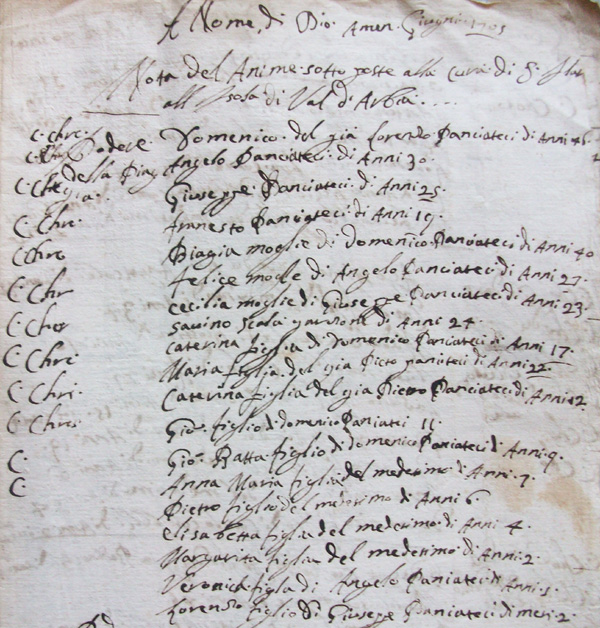 A Nome, di Dio. Amen. Giugnio 1705
Nota del Anime sotto poste alla cura di S.
all Isola di Val d'Arbia. . . .
C. Chre. Podere Domenico del già Lorenzo Panciatici di Anni 46
della Piag Angelo Panciateci di Anni 30.
C. Chre gia. Giuseppe Panciateci di Anni 25.
C. Chre. Panciateci di Anni 19.
C Chre Biagia moglie di Domenico Panciateci di Anni 40
C. Chr Felice mogle di Angelo Panciateci di Anni 27.
C. Chre Cecilia moglie di Giuseppe Panciateci di Anni 23.
C. Chre savino Scala garzone di Anni 24.
C. Chre. Caterina figlia di domenico Panciateci di Anni 17.
C. Chri. Maria figlia del gia Pietro Panciateci di Anni 22.
C Chre. Caterina figlia del gia Pietro Panciateci di Anni 12.
C. Gio: figlio di domenico Paniateci 11.
C Gio: Batta figlio di domenico Paniateci di Anni 9.
Anna Maria figlia del medesimo di Anni 7.
Pietro figlio del medesimo di Anni 6
elisabetta figlia del medesimo di Anni 4.
Margarita figlia del medesimo di Anni 2.
Veronica figla di Angelo Paniateci di Anni 1.
Lorenzo figlio di Giusepe Paniateci di mesi 2.